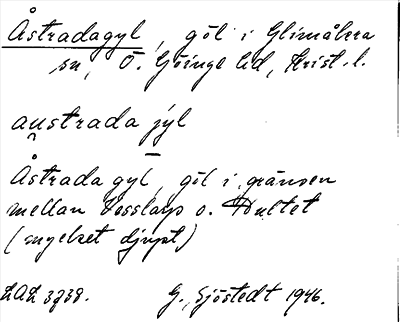 Åstradagyl, göl i Glimåkra
sn, Ö. Göinge hd, Krist. l.
au̯strada jȳl
Åstrada gyl, göl i gränsen
mellan Vesslarp o. Hultet
(mycket djupt)
LAL 3738. G. Sjöstedt 1946.